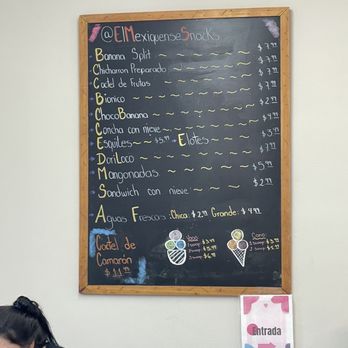 @ElMexiquenseSnacks
Banana Split $7.99
Chicharron Preparado $7.99
Coctel de Frutas $7.99
Bionico $7.99
ChocoBanana $2.99
Concha con nieve $4.99
Esquiles $5.99 Elotes $3.99
DoriLoco $7.99
Mangonadas $5.99
Sandwich con nieve $2.99
Aguas Frescas: Chica: $2.99 Grande: $4.99
Coctel de
Camarón
$11.99
Cono
Entrada